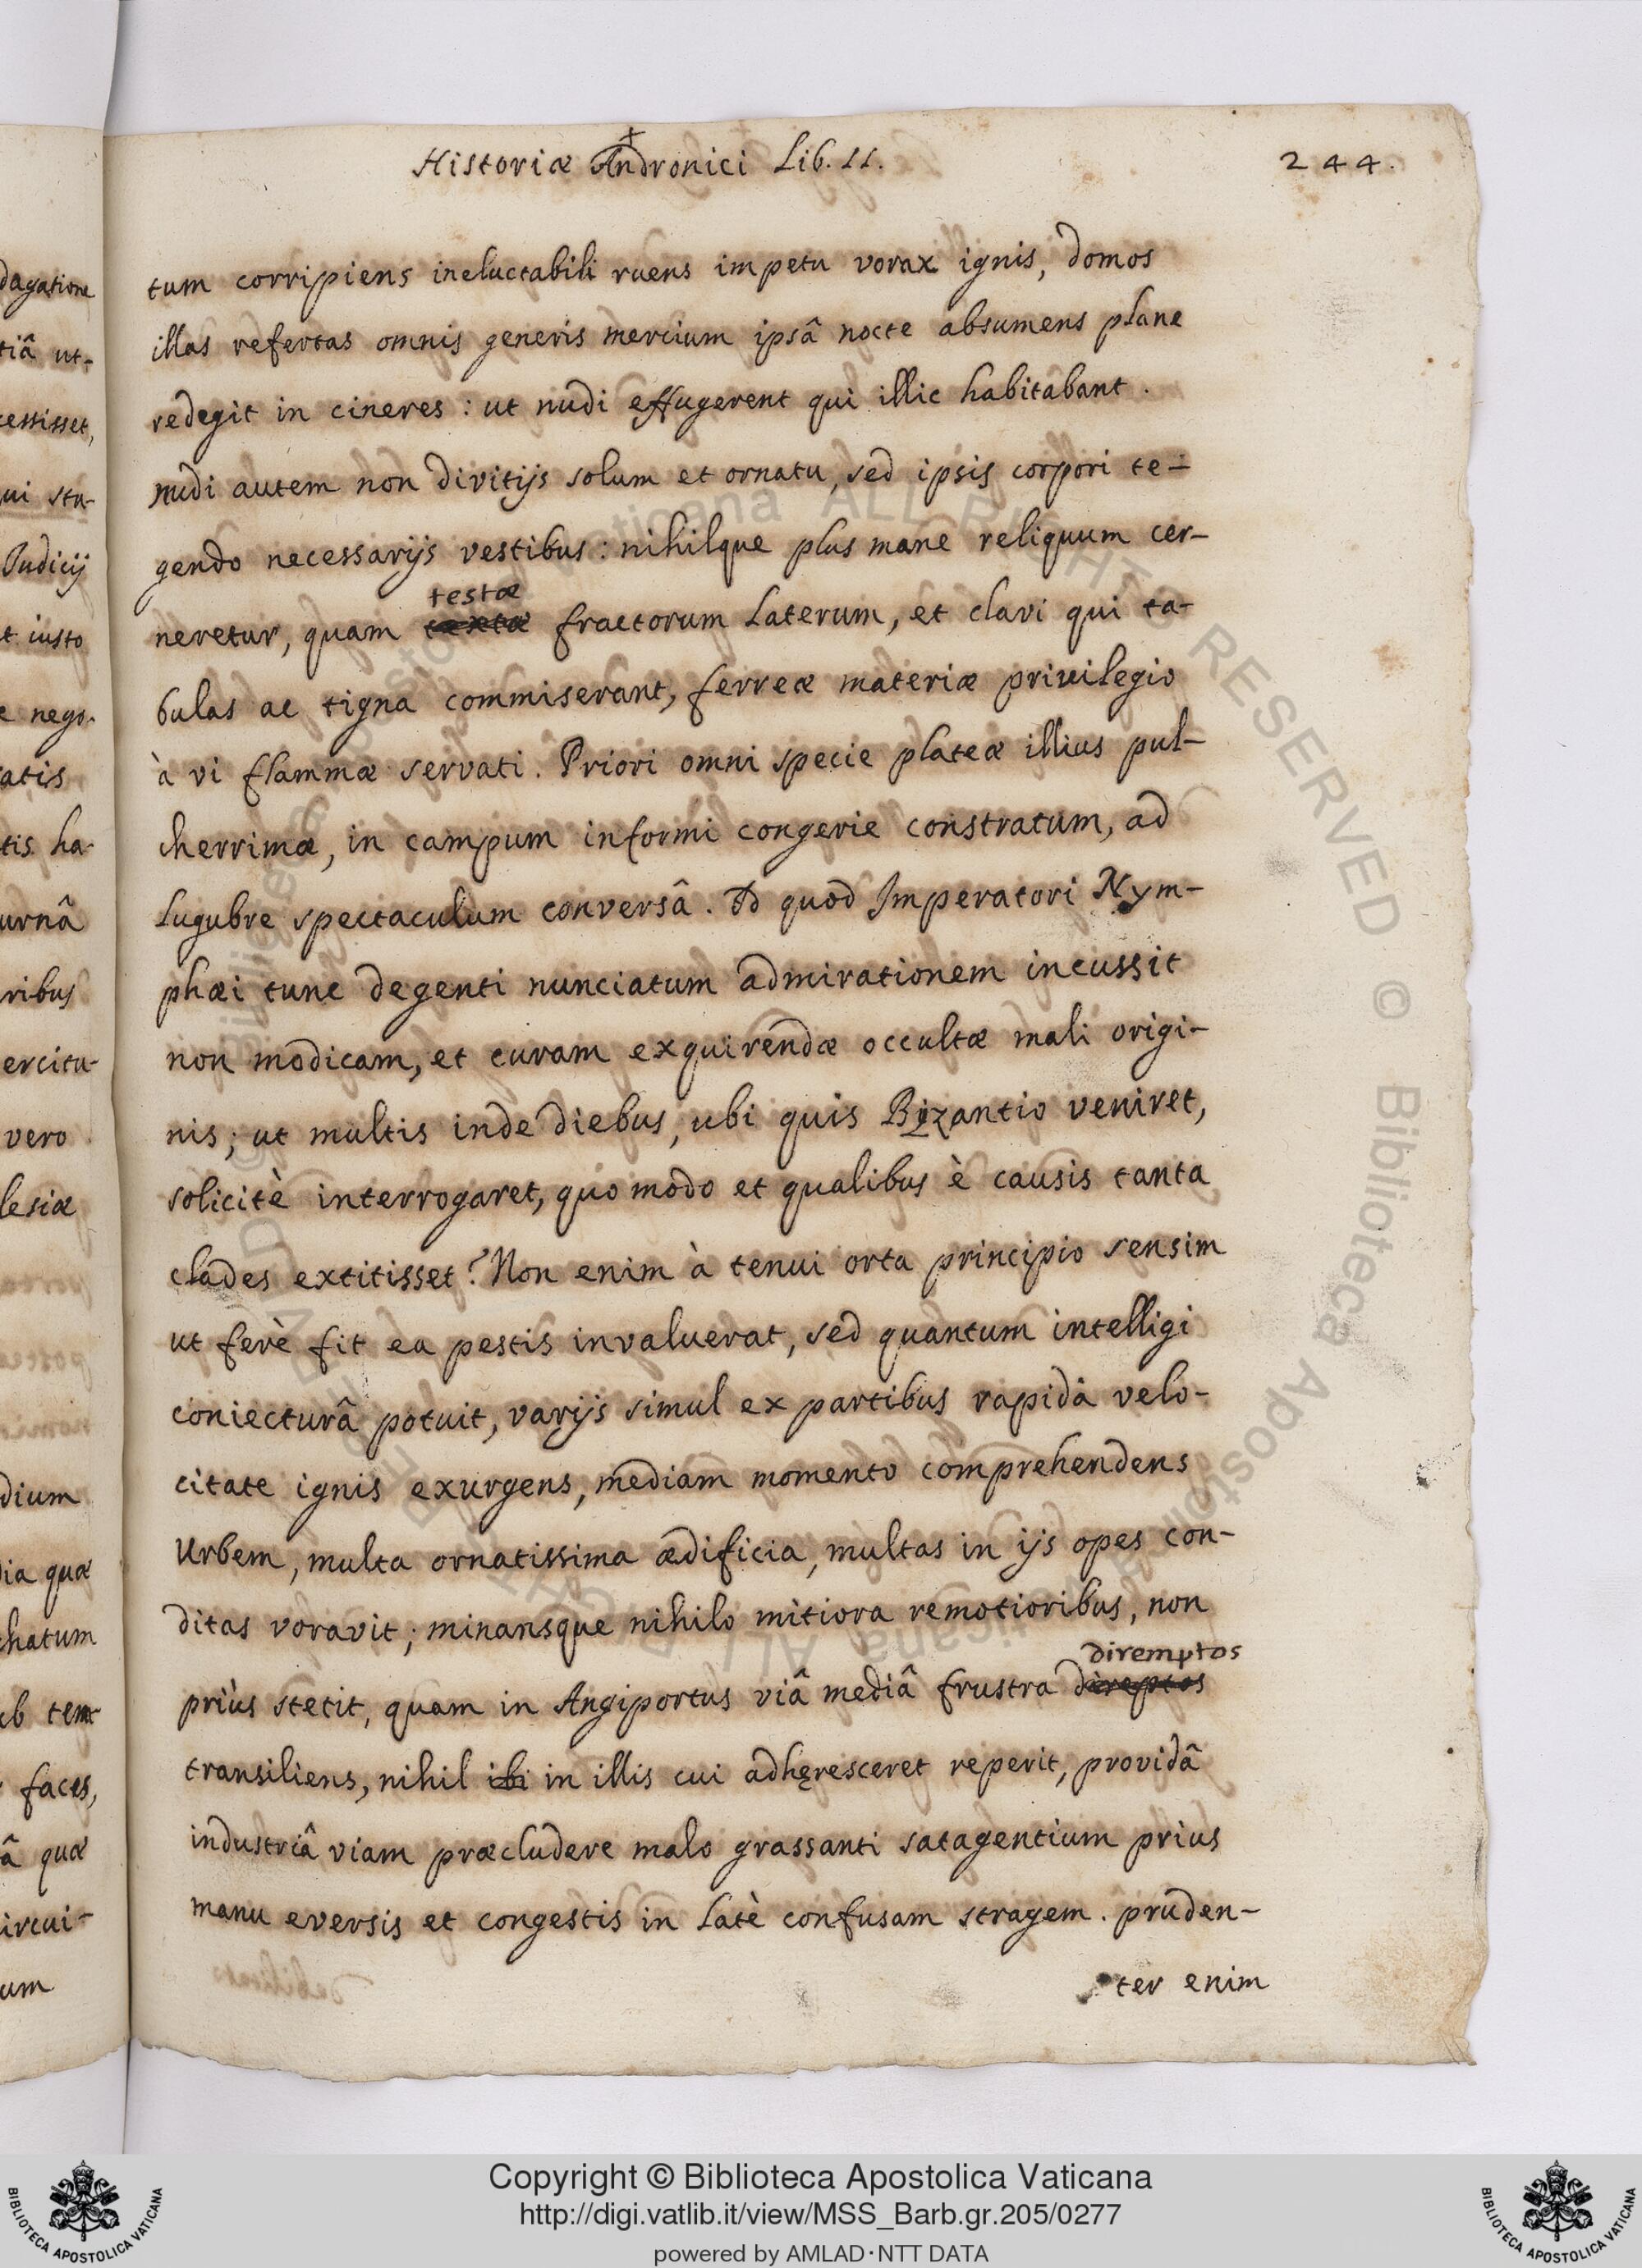 Historiæ Andronici Lib. II.
244.
tum corripiens ineluctabili ruens impetu vorax ignis, domos
illas refertas omnis generis mercium ipsâ nocte absumens plane
redegit in cineres : ut nudi effugerent qui illic habitabant .
nudi autem non divitijs solum et ornatu, sed ipsis corpori te-
gendo necessarijs vestibus : nihilque plus mane reliquum cer-
testæ
neretur, quam textæ fractorum laterum, et clavi qui ta-
bulas ac tigna commiserant, ferreæ materiæ privilegio
à vi flammæ servati. Priori omni specie plateæ illius pul-
cherrimæ, in campum informi congerie constratum, ad
lugubre spectaculum conversâ. Id quod Imperatori Nym-
phæi tunc degenti nunciatum admirationem incussit
non modicam, et curam exquirendæ occultæ mali origi-
nis; ut multis inde diebus, ubi quis Byzantio veniret,
solicitè interrogaret, quo modo et qualibus è causis tanta
clades extitisset? Non enim à tenui orta principio sensim
ut ferè fit ea pestis invaluerat, sed quantum intelligi
coniecturâ potuit, varijs simul ex partibus rapidâ velo-
citate ignis exurgens, mediam momento comprehendens
Urbem, multa ornatissima ædificia, multas in ijs opes con-
ditas voravit; minansque nihilo mitiora remotioribus, non
diremptos
priùs stetit, quam in Angiportus viâ mediâ frustra direptos
transiliens, nihil ibi in illis cui adhęresceret reperit, providâ
industriâ viam præcludere malo grassanti satagentium priùs
manu eversis et congestis in latè confusam stragem. pruden-
ter enim
dagatione
tiâ ut-
cessisset,
qui stu-
Iudicij
t iusto
e nego-
ratis
tis ha-
urnâ
ribus
ercitu-
vero
lesiæ
dium
ia quæ
chatum
faces,
â quæ
ircui-
um
Copyright © Biblioteca Apostolica Vaticana
http://digi.vatlib.it/view/MSS_Barb.gr.205/0277
powered by AMLAD·NTT DATA
BIBLIOTECA APOSTOLICA VATICANA
BIBLIOTECA APOSTOLICA VATICANA